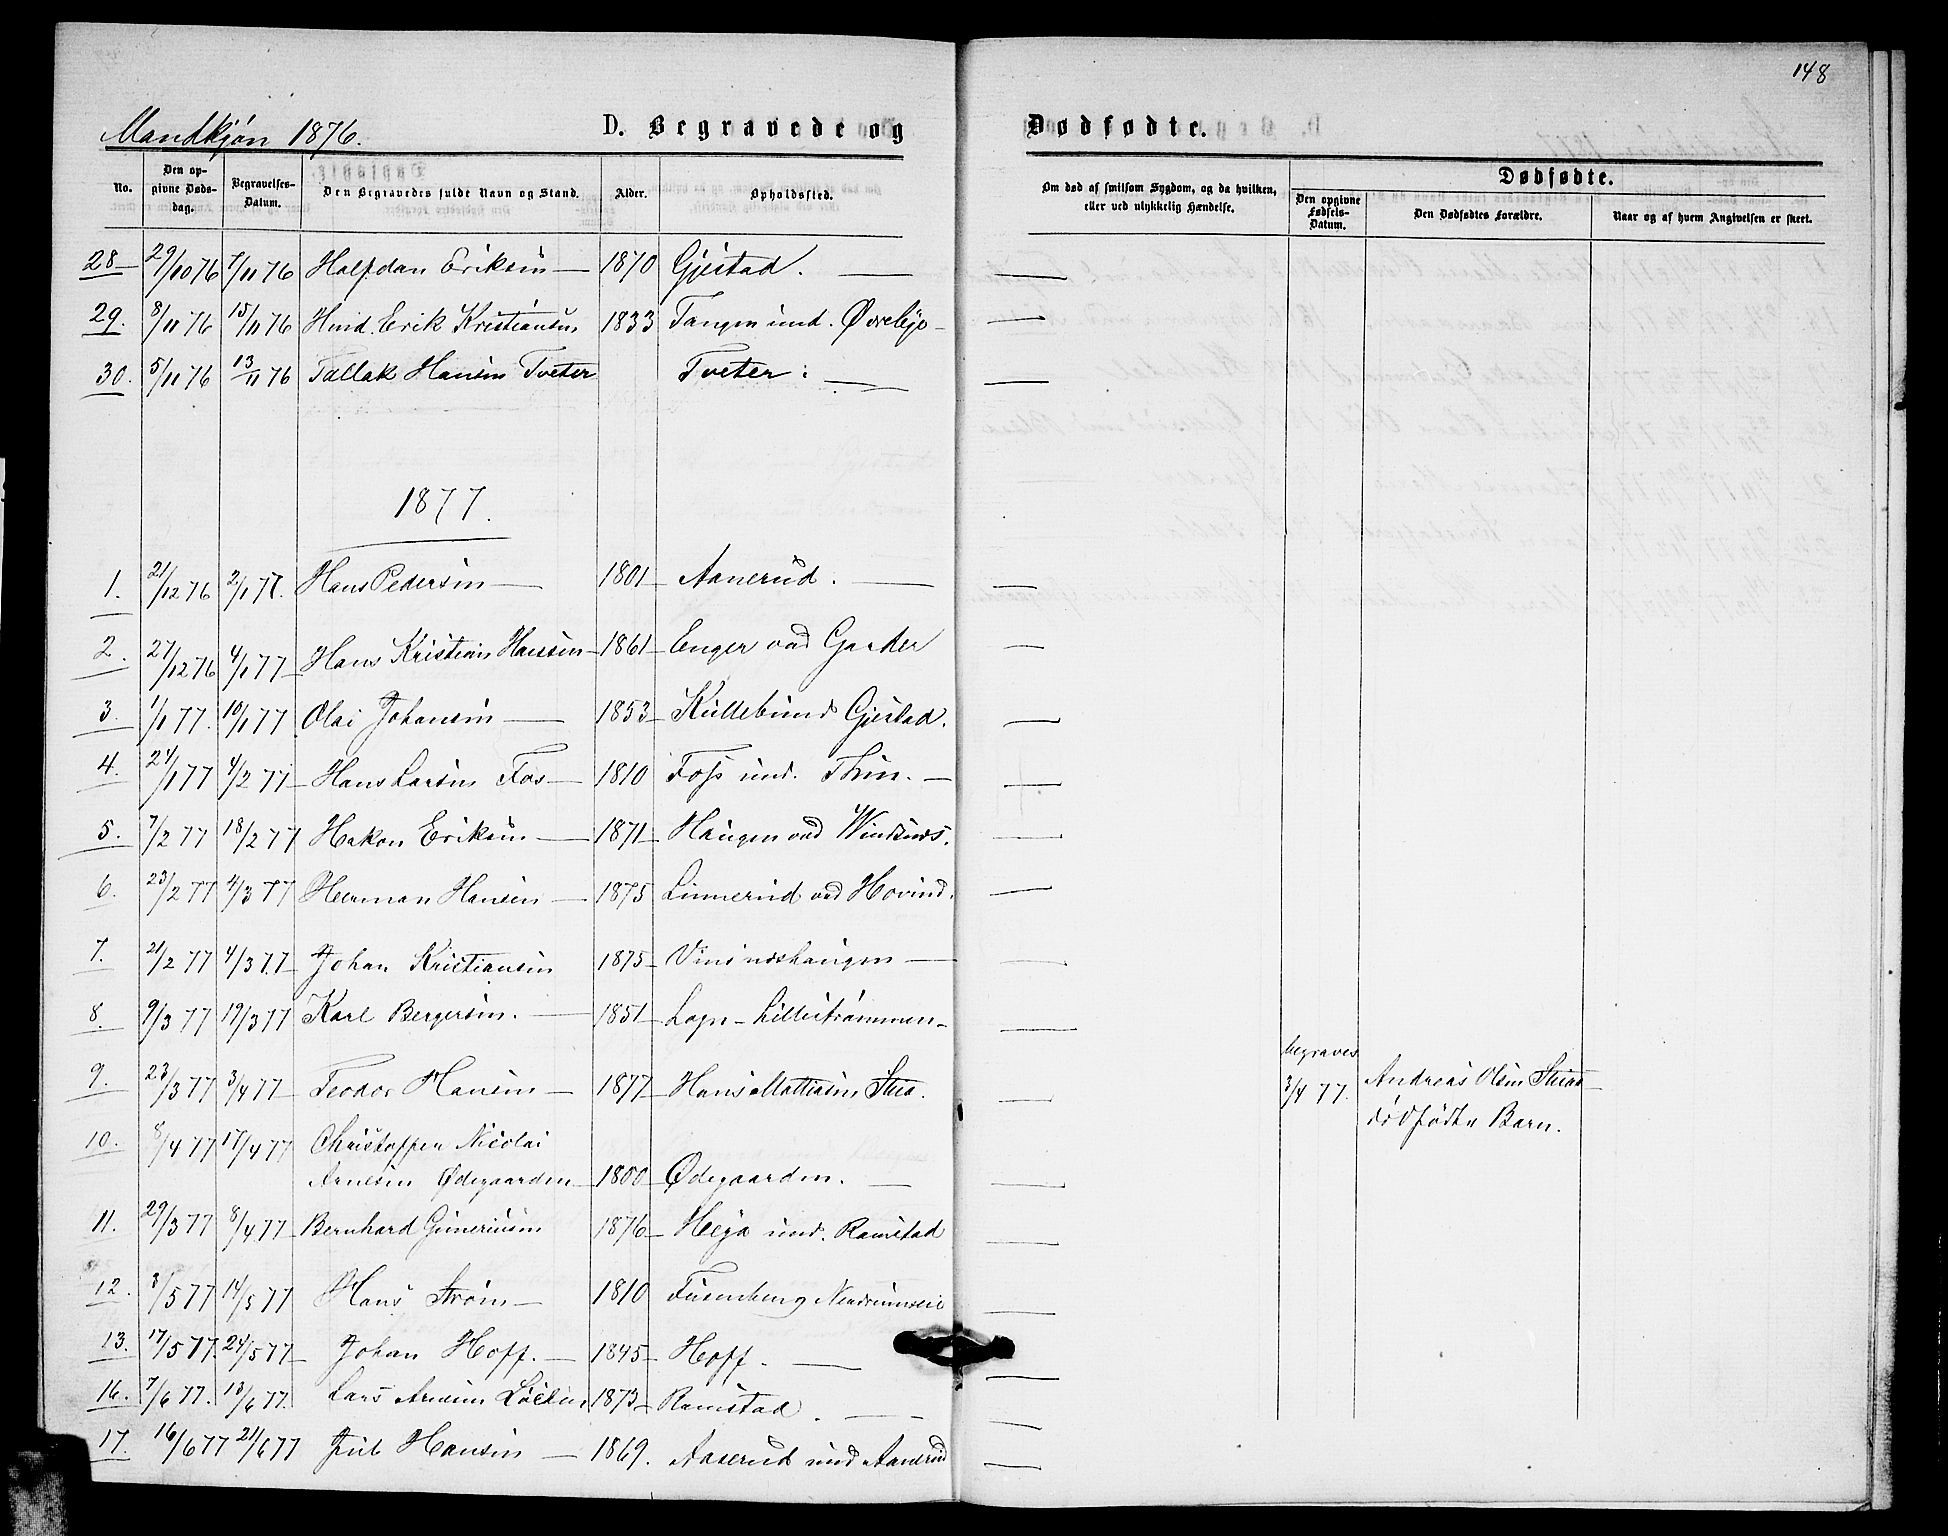 148
Mandkjøn 1876.
D. Begravede og Dødfødte.
No. Den opgivne Dødsdag. Begravelses-Datum. Den Begravedes fulde Navn og Stand. Alder. Opholdssted. Om død af smitsom Sygdom, og da hvilken, eller ved ulykkelig Hændelse. Dødfødte. Den opgivne Fødsels-Datum. Den Dødfødtes Forældre. Naar og af hvem Angivelsen er skeet.
28 29/10 76 7/11 76 Halfdan Eriksen — 1870 Gjestad. — —
29. 8/11 76 15/11 76 Erik Kristiansen 1833 Tangen und. —
30. 5/11 76 13/11 76 Tallak Hansen Tveter Tveter. — —
1877.
1. 21/12 76 2/1 77. Hans Pedersen — 1801 Aanerud. — —
2. 27/12 76 4/1 77 Hans Kristian Hansen 1861 Enger ved Garder —
3. 1/1 77. 10/1 77 Olai Johansen — 1853 Kullebund Gjestad. —
4. 24/1 77 4/2 77 Hans Larsen Fos 1810 Foss und. — —
5. 7/2 77 18/2 77 Hakon Eriksen — 1871 Haugen ved —
6. 23/2 77 4/3 77 Herman Hansen — 1875 Linnerud ved Hovind. —
7. 21/2 77 4/3 77 Johan Kristiansen 1875 — —
8. 9/3 77 19/3 77 Karl Bergersen. — 1851 Lillestrømmen —
9. 23/3 77 3/4 77 Teodor Hansen — 1877 Hans Mattisen begraves 3/4 77. Andreas Olsen
dødfødte Barn.
10. 8/4 77 17/4 77 Christoffer Nicolai
Arnesen Ødegaarden 1800 Ødegaarden. — —
11. 29/3 77 8/4 77 Bernhard Guneriusen 1876 Heja und. Ramstad —
12. 3/5 77 14/5 77 Hans Strøm — 1810 —
13. 17/5 77. 24/5 77 Johan Hoff. — 1845 Hoff. — —
16. 7/6 77. 13/6 77. Lars Arnesen 1873 Ramstad. — —
17. 16/6 77 21/6 77 Hansen — 1869. Aaserud und Aanerud —